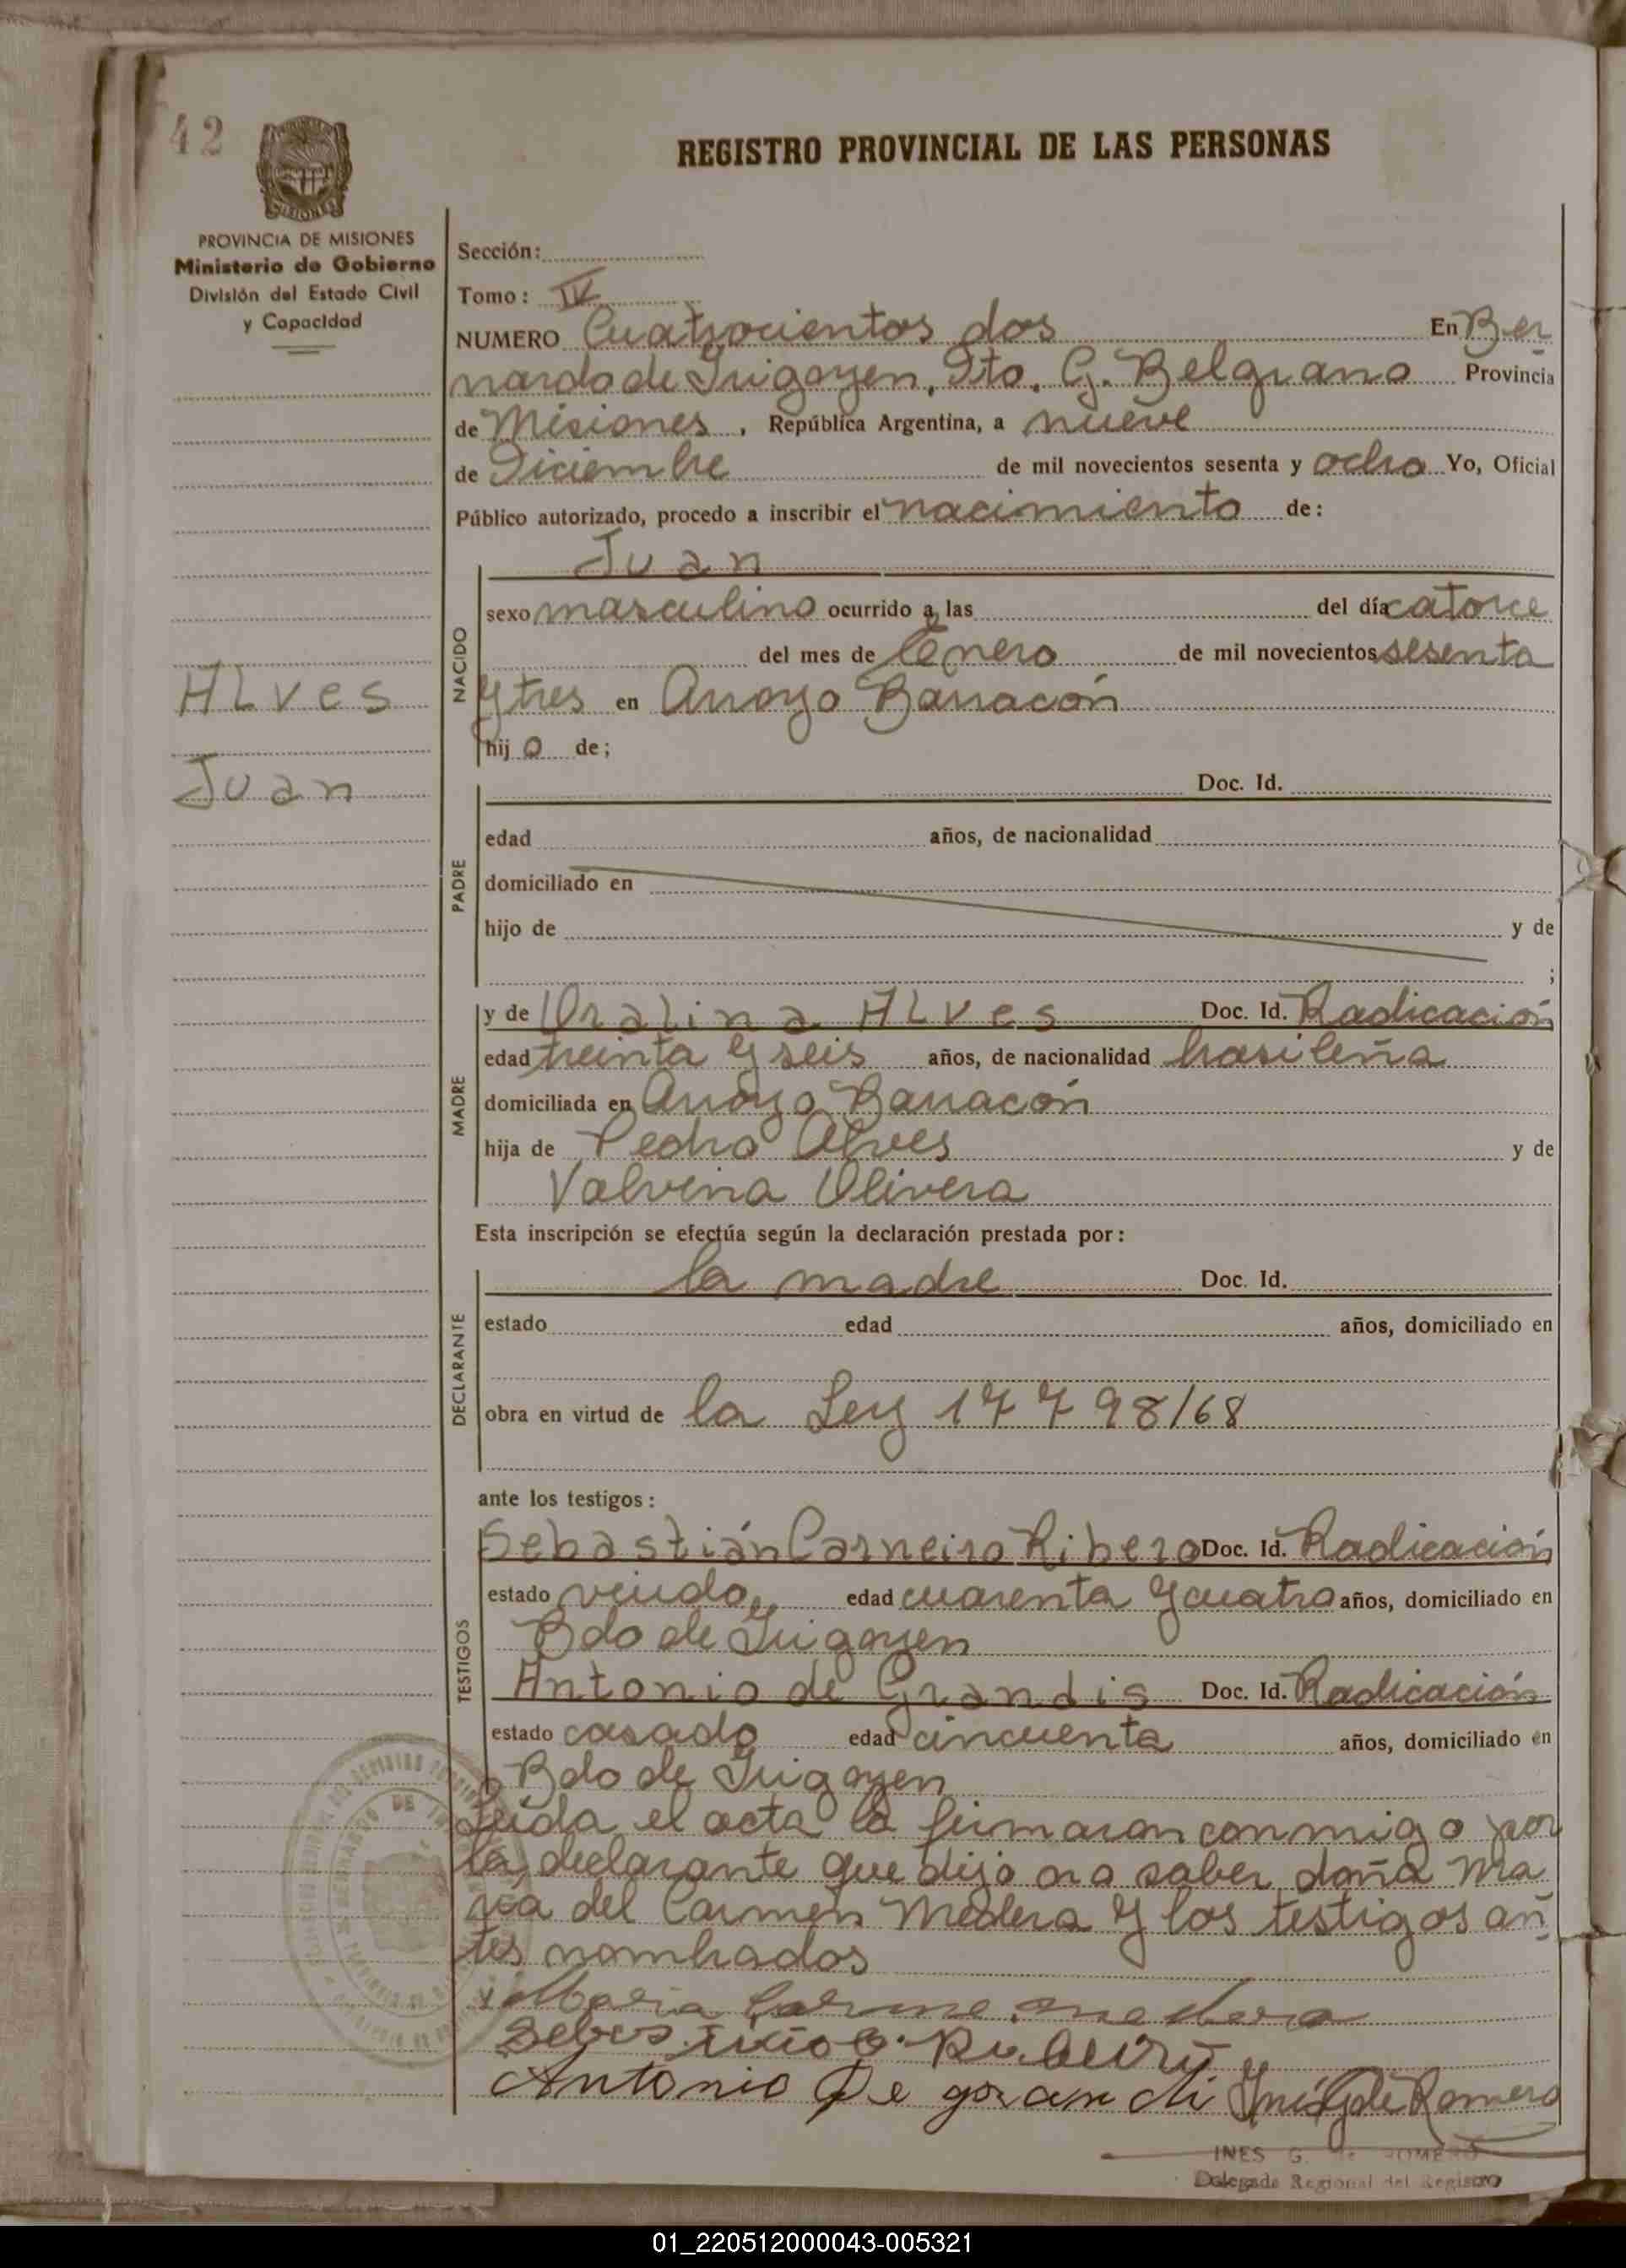 42
MISIONES
PROVINCIA DE MISIONES
Ministerio de Gobierno
División del Estado Civil
y Capacidad
REGISTRO PROVINCIAL DE LAS PERSONAS
Sección:
Tomo: IV
NUMERO Cuatrocientos dos En Ber
nardo de Irigoyen, Dto. G. Belgrano Provincia
de Misiones, República Argentina, a nueve
de Diciembre de mil novecientos sesenta y ocho Yo, Oficial
Público autorizado, procedo a inscribir el nacimiento de:
Juan
NACIDO
sexo masculino ocurrido a las del día catorce
del mes de Enero de mil novecientos sesenta
y tres en Arroyo Barracón
hijo de;
ALves
Juan
PADRE
Doc. Id.
edad años, de nacionalidad
domiciliado en
hijo de y de
;
MADRE
y de Oralina ALves Doc. Id. Radicación
edad treinta y seis años, de nacionalidad brasileña
domiciliada en Arroyo Barracón
hija de Pedro Alves y de
Valvina Olivera
Esta inscripción se efectúa según la declaración prestada por:
DECLARANTE
la madre Doc. Id.
estado edad años, domiciliado en
obra en virtud de la Ley 17798/68
ante los testigos:
TESTIGOS
Sebastián Carneiro Ribero Doc. Id. Radicación
estado viudo, edad cuarenta y cuatro años, domiciliado en
Bdo de Irigoyen
Antonio de Grandis Doc. Id. Radicación
estado casado edad cincuenta años, domiciliado en
Bdo de Irigoyen
Leída el acta la firmaron conmigo por
la declarante que dijo no saber doña Ma
ría del Carmen Medera y los testigos an
tes nombrados
Maria Carme medera
Antonio De grandi Inés G de Romero
INES G. de ROMERO
Delegada Regional del Registro
01_220512000043-005321